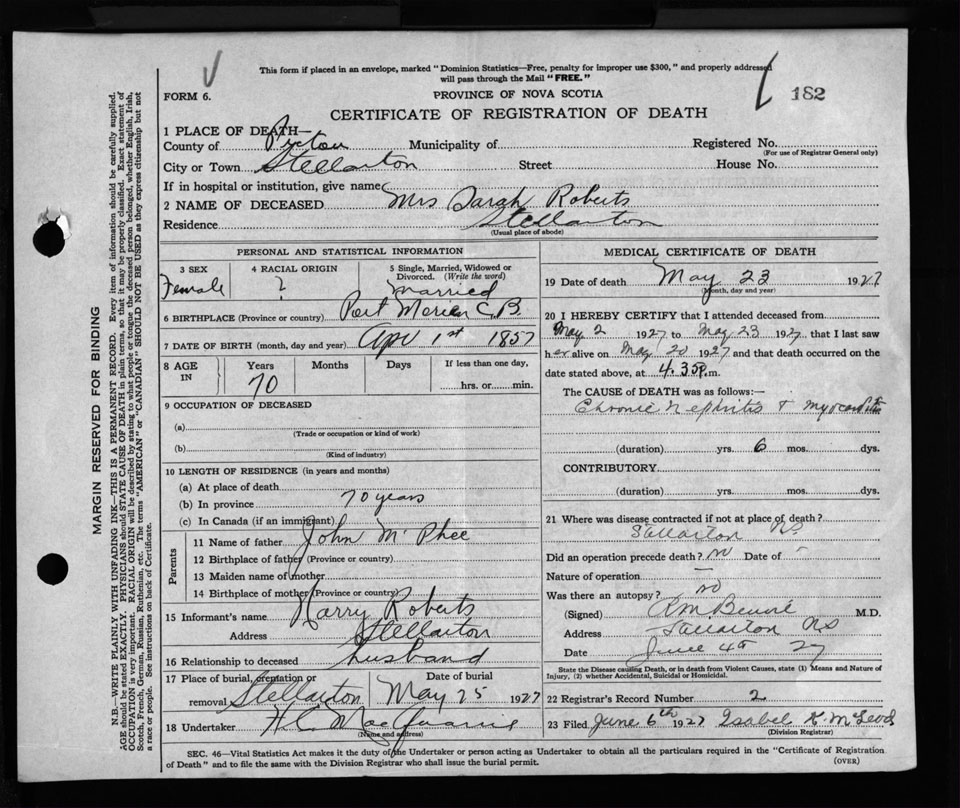 This form if placed in an envelope, marked "Dominion Statistics—Free, penalty for improper use $300," and properly addressed
will pass through the Mail "FREE."
FORM 6.
PROVINCE OF NOVA SCOTIA
182
CERTIFICATE OF REGISTRATION OF DEATH
1 PLACE OF DEATH—
County of Pictou Municipality of Registered No.
(For use of Registrar General only)
City or Town Stellarton Street House No.
If in hospital or institution, give name
2 NAME OF DECEASED Mrs Sarah Roberts
Residence Stellarton
(Usual place of abode)
PERSONAL AND STATISTICAL INFORMATION
3 SEX 4 RACIAL ORIGIN 5 Single, Married, Widowed or
Divorced. (Write the word)
Female ? married
6 BIRTHPLACE (Province or country) Port Morien C.B.
7 DATE OF BIRTH (month, day and year) Apr 1st 1857
8 AGE IN Years Months Days If less than one day,
70 hrs. or min.
9 OCCUPATION OF DECEASED
(a)
(Trade or occupation or kind of work)
(b)
(Kind of industry)
10 LENGTH OF RESIDENCE (in years and months)
(a) At place of death
(b) In province 70 years
(c) In Canada (if an immigrant)
Parents
11 Name of father John McPhee
12 Birthplace of father (Province or country)
13 Maiden name of mother
14 Birthplace of mother (Province or country)
15 Informant's name Harry Roberts
Address Stellarton
16 Relationship to deceased husband
17 Place of burial, cremation or removal Stellarton Date of burial May 25 1927
18 Undertaker H.C. MacQuarrie
(Name and address)
MEDICAL CERTIFICATE OF DEATH
19 Date of death May 23 1927
(Month, day and year)
20 I HEREBY CERTIFY that I attended deceased from
May 2 1927 to May 23 1927, that I last saw
her alive on May 20 1927 and that death occurred on the
date stated above, at 4.35 P.m.
The CAUSE of DEATH was as follows:—
Chronic Nephritis + myocarditis
(duration) yrs. 6 mos. dys.
CONTRIBUTORY
(duration) yrs. mos. dys.
21 Where was disease contracted if not at place of death?
Stellarton NS
Did an operation precede death? no Date of
Nature of operation —
Was there an autopsy? no
(Signed) M.D.
Address Stellarton NS
Date June 4th 27
State the Disease causing Death, or in death from Violent Causes, state (1) Means and Nature of
Injury, (2) whether Accidental, Suicidal or Homicidal.
22 Registrar's Record Number 2
23 Filed June 6th 1927 Isabel K. McLeod
(Division Registrar)
SEC. 46—Vital Statistics Act makes it the duty of the Undertaker or person acting as Undertaker to obtain all the particulars required in the "Certificate of Registration
of Death" and to file the same with the Division Registrar who shall issue the burial permit.
(OVER)
MARGIN RESERVED FOR BINDING
N.B.—WRITE PLAINLY WITH UNFADING INK—THIS IS A PERMANENT RECORD. Every item of information should be carefully supplied.
AGE should be stated EXACTLY. PHYSICIANS should STATE CAUSE OF DEATH in plain terms, so that it may be properly classified. Exact statement of
OCCUPATION is very important. RACIAL ORIGIN will be described by stating to what people or tongue the deceased person belonged, whether English, Irish,
Scotch, French, German, Russian, Ruthenian, etc. The terms "AMERICAN" or "CANADIAN" SHOULD NOT BE USED as they express citizenship but not
a race or people. See instructions on back of Certificate.